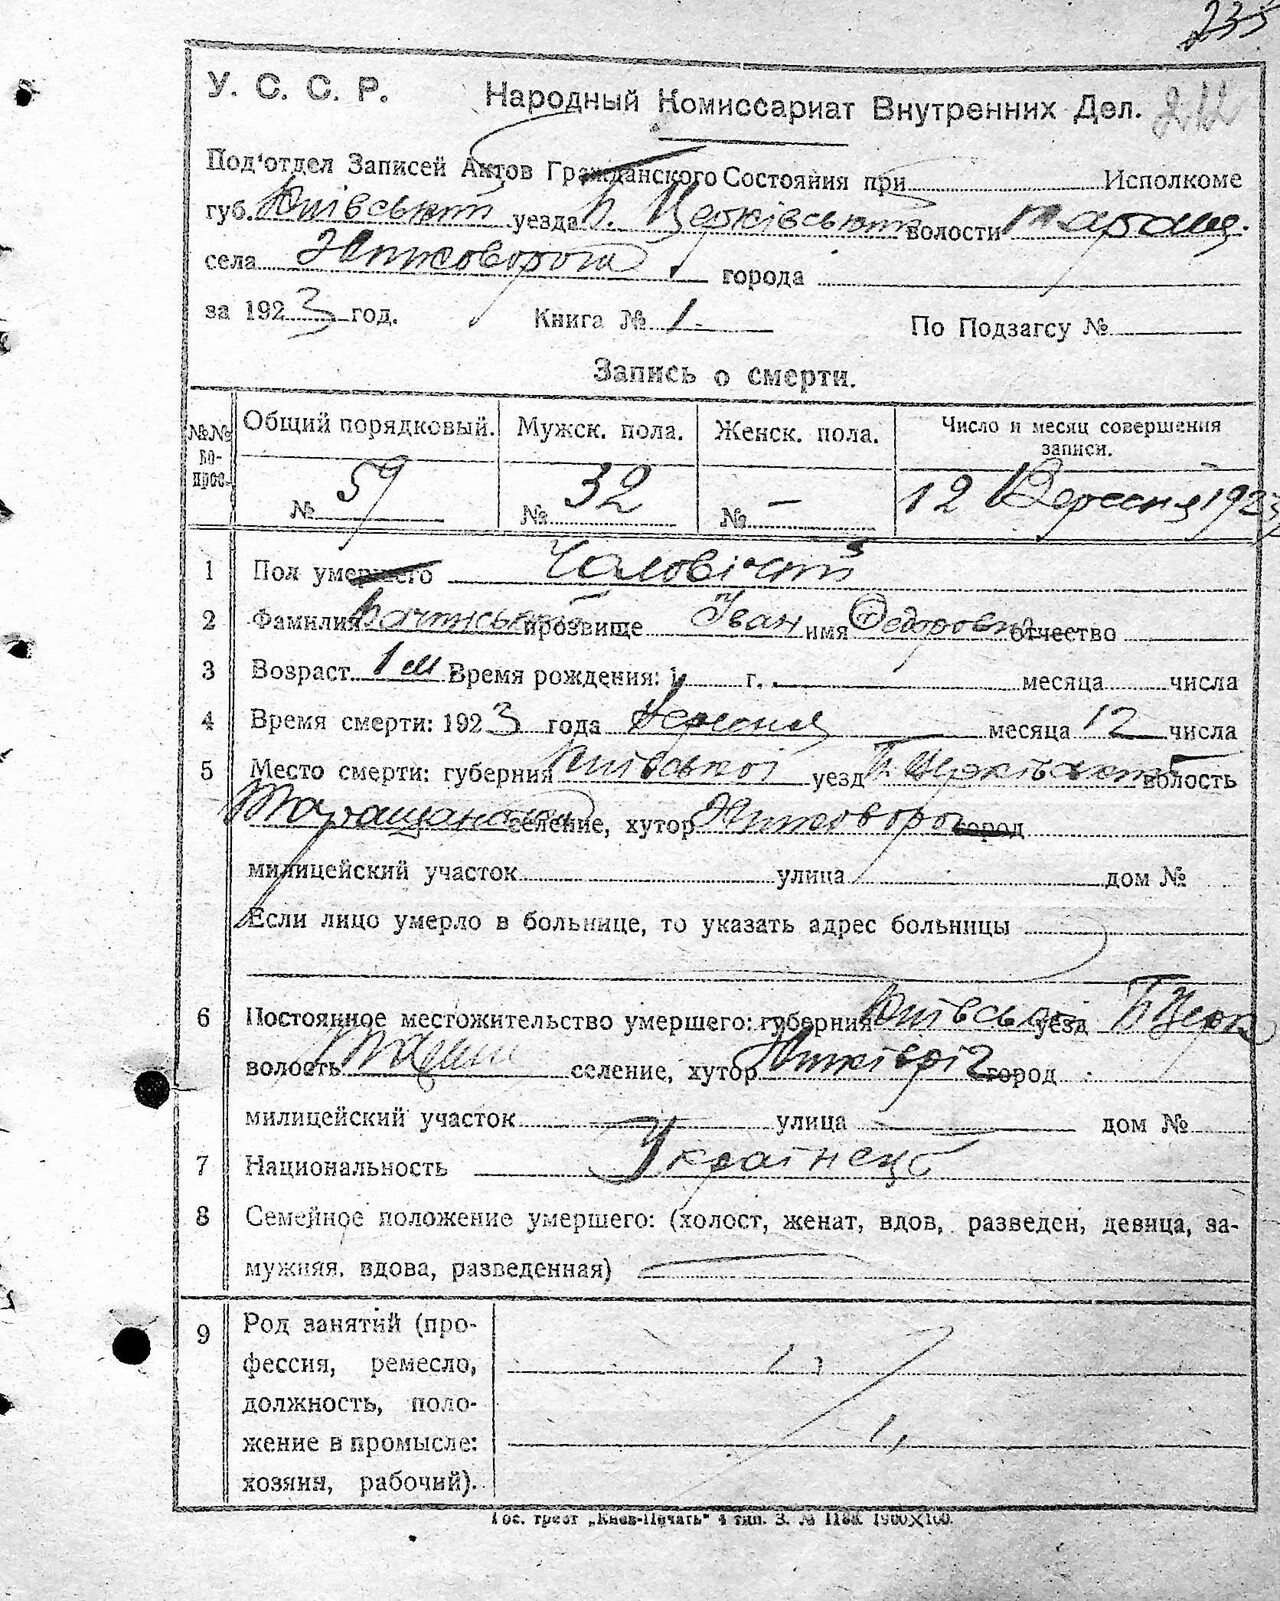 235
У. С. С. Р. Народный Комиссариат Внутренних Дел. 212
Под'отдел Записей Актов Гражданского Состояния при Исполкоме
губ. Київський уезда Б. Церківський волости Таращ.
села города
за 1923 год. Книга № 1. По Подзагсу №
Запись о смерти.
№№ вопрос. Общий порядковый. Мужск. пола. Женск. пола. Число и месяц совершения записи.
№ 59 № 32 № – 12 Вересня 1923
1 Пол умершего Чоловічий
2 Фамилия прозвище Іван имя Федорович отчество
3 Возраст 1 м Время рождения: 1 г. месяца числа
4 Время смерти: 1923 года Вересня месяца 12 числа
5 Место смерти: губерния Київської уезд Б. Церківський волость
Таращанської селение, хутор город
милицейский участок улица дом №
Если лицо умерло в больнице, то указать адрес больницы
6 Постоянное местожительство умершего: губерния Київської уезд Б Церк
волость селение, хутор город
милицейский участок улица дом №
7 Национальность Українець
8 Семейное положение умершего: (холост, женат, вдов, разведен, девица, за-
мужняя, вдова, разведенная)
9 Род занятий (про-
фессия, ремесло,
должность, поло-
жение в промысле:
хозяин, рабочий).
Гос. трест „Киев-Печать" 4 тип. З. №